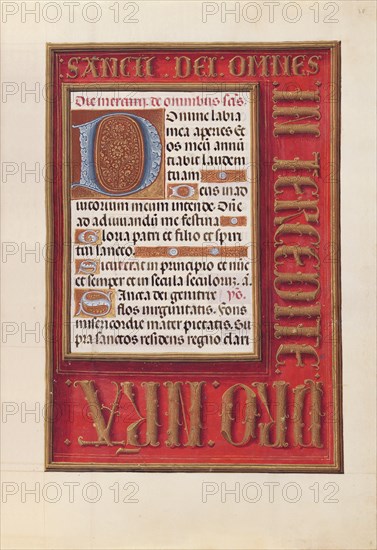 SANCTI DEI OMNES
IN TERCEDITE
PRO NRA
Die mercurij de omnibus scis
Domine labia
mea aperies Et
os meū annū
tiabit laudem
tuam
Deus in ad
iutorium meum intende. Dn̄e
ad adiuuandū me festina
Gloria patri et filio et spiri
tui sancto.
Sicut erat in principio et nūc
et semper et in secula seculorū. a.
Sancta dei genitrix
flos virginitatis. Fons
misericordie mater pietatis. Su
pra sanctos residens regno clari
PHOTO 12